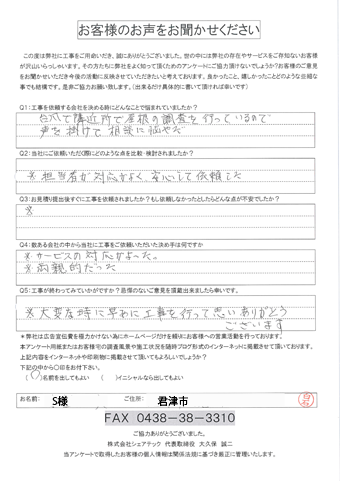 お客様のお声をお聞かせください
この度は弊社に工事をご用命いただき、誠にありがとうございました。世の中には弊社の存在やサービスをご存知ないお客様
が沢山いらっしゃいます。その方たちに弊社をよく知って頂くためのアンケートにご協力頂けないでしょうか?お客様のご意見
をお聞かせいただき今後の活動に反映させていただきたいと考えております。良かったこと、嬉しかったことどのような些細な
事でも結構です。是非ご協力お願い致します。(出来るだけ具体的に書いて頂ければ幸いです)
Q1:工事を依頼する会社を決める時にどんなことで悩まれていましたか?
台風で隣近所で屋根の調査を行っているので
声を掛けて相談に
Q2:当社にご依頼いただく際にどのような点を比較・検討されましたか?
※担当者が対応がよく、安心して依頼した
Q3:お見積り提出後すぐに工事を依頼されましたか?もし依頼しなかったとしたらどんな点が不安でしたか?
※
Q4:数ある会社の中から当社に工事をご依頼いただいた決め手は何ですか
※サービスの対応がよかった。
※両親的だった
Q5:工事が終わってみていかがですか?忌憚のないご意見を頂戴出来ましたら幸いです。
※大変な時に早めに工事を行って思いありがとう
ございます
*弊社は広告宣伝費を極力かけない為にホームページだけを頼りにお客様への営業活動を行っております。
本アンケート用紙またはお客様宅の調査風景や施工状況を随時ブログ形式でのインターネットに掲載させて頂いております。
上記内容をインターネットや印刷物に掲載させて頂いてもよろしいでしょうか?
下記の中から〇印をお付下さい。
(〇)名前を出してもよい ( )イニシャルなら出してもよい
お名前: S様 ご住所: 君津市
FAX 0438-38-3310
ご協力ありがとうございました。
株式会社シェアテック 代表取締役 大久保 誠二
当アンケートで取得したお客様の個人情報は関係法規に基づき厳正に管理いたします。